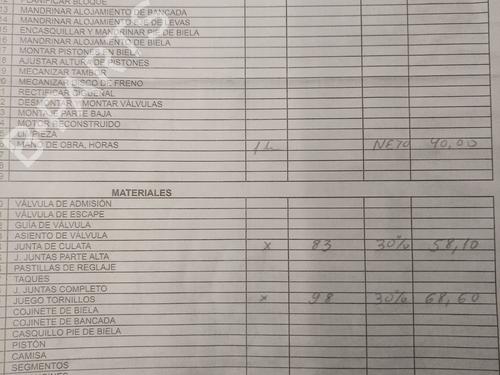 PLANIFICAR BLOQUE
13 MANDRINAR ALOJAMIENTO DE BANCADA
14 MANDRINAR ALOJAMIENTO EJE DE LEVAS
15 ENCASQUILLAR Y MANDRINAR PIE DE BIELA
16 MANDRINAR ALOJAMIENTO DE BIELA
17 MONTAR PISTONES EN BIELA
18 AJUSTAR ALTURA DE PISTONES
19 MECANIZAR TAMBOR
MECANIZAR DISCO DE FRENO
RECTIFICAR CIGÜEÑAL
DESMONTAR Y MONTAR VÁLVULAS
MONTAJE PARTE BAJA
MOTOR RECONSTRUIDO
LIMPIEZA
MANO DE OBRA, HORAS 1 h NETO 40,00
MATERIALES
VÁLVULA DE ADMISIÓN
VÁLVULA DE ESCAPE
GUÍA DE VÁLVULA
ASIENTO DE VÁLVULA
JUNTA DE CULATA x 83 30% 58,10
J. JUNTAS PARTE ALTA
PASTILLAS DE REGLAJE
TAQUES
J. JUNTAS COMPLETO
JUEGO TORNILLOS x 98 30% 68,60
COJINETE DE BIELA
COJINETE DE BANCADA
CASQUILLO PIE DE BIELA
PISTÓN
CAMISA
SEGMENTOS